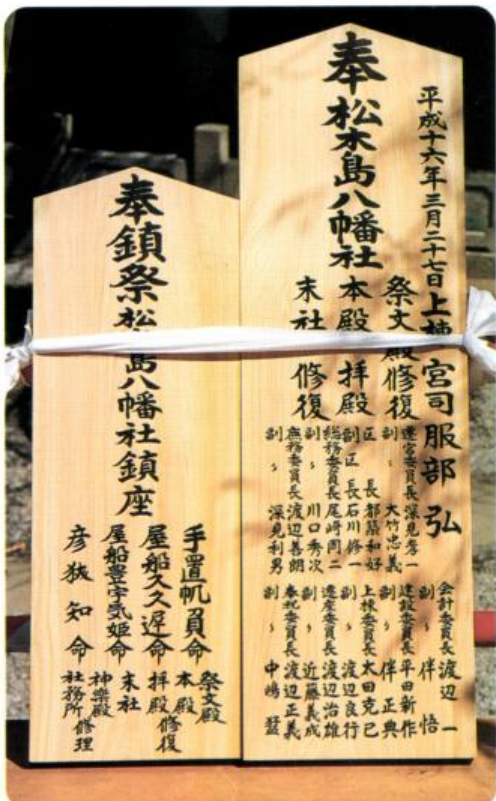 平成十六年三月二十七日上棟 宮司服部弘
奉松木島八幡社
祭文殿修復
本殿 拝殿
末社 修復
遷宮委員長深見孝一
副〃 大竹忠義
区長都築和好
副区長石川修一
総務委員長尾崎周二
副〃 川口秀次
庶務委員長渡辺善朗
副〃 深見利男
会計委員長渡辺一
副〃 伴悟
建設委員長平田新作
副〃 伴正典
上棟委員長太田克己
副〃 渡辺良行
遷座委員長渡辺治雄
副〃 近藤義成
奉祝委員長渡辺正義
副〃 中嶋猛
奉鎮祭松木島八幡社鎮座
手置帆負命
屋船久久遅命
屋船豊宇気姫命
彦狭知命
祭文殿
本殿
拝殿修復
末社
神楽殿
社務所修理